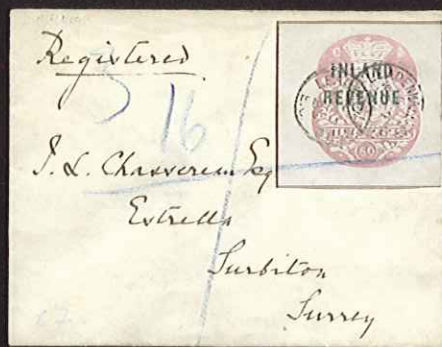 Registered
INLAND
REVENUE
16
J. L. Chassereau Esq
Estrella
Surbiton
Surrey